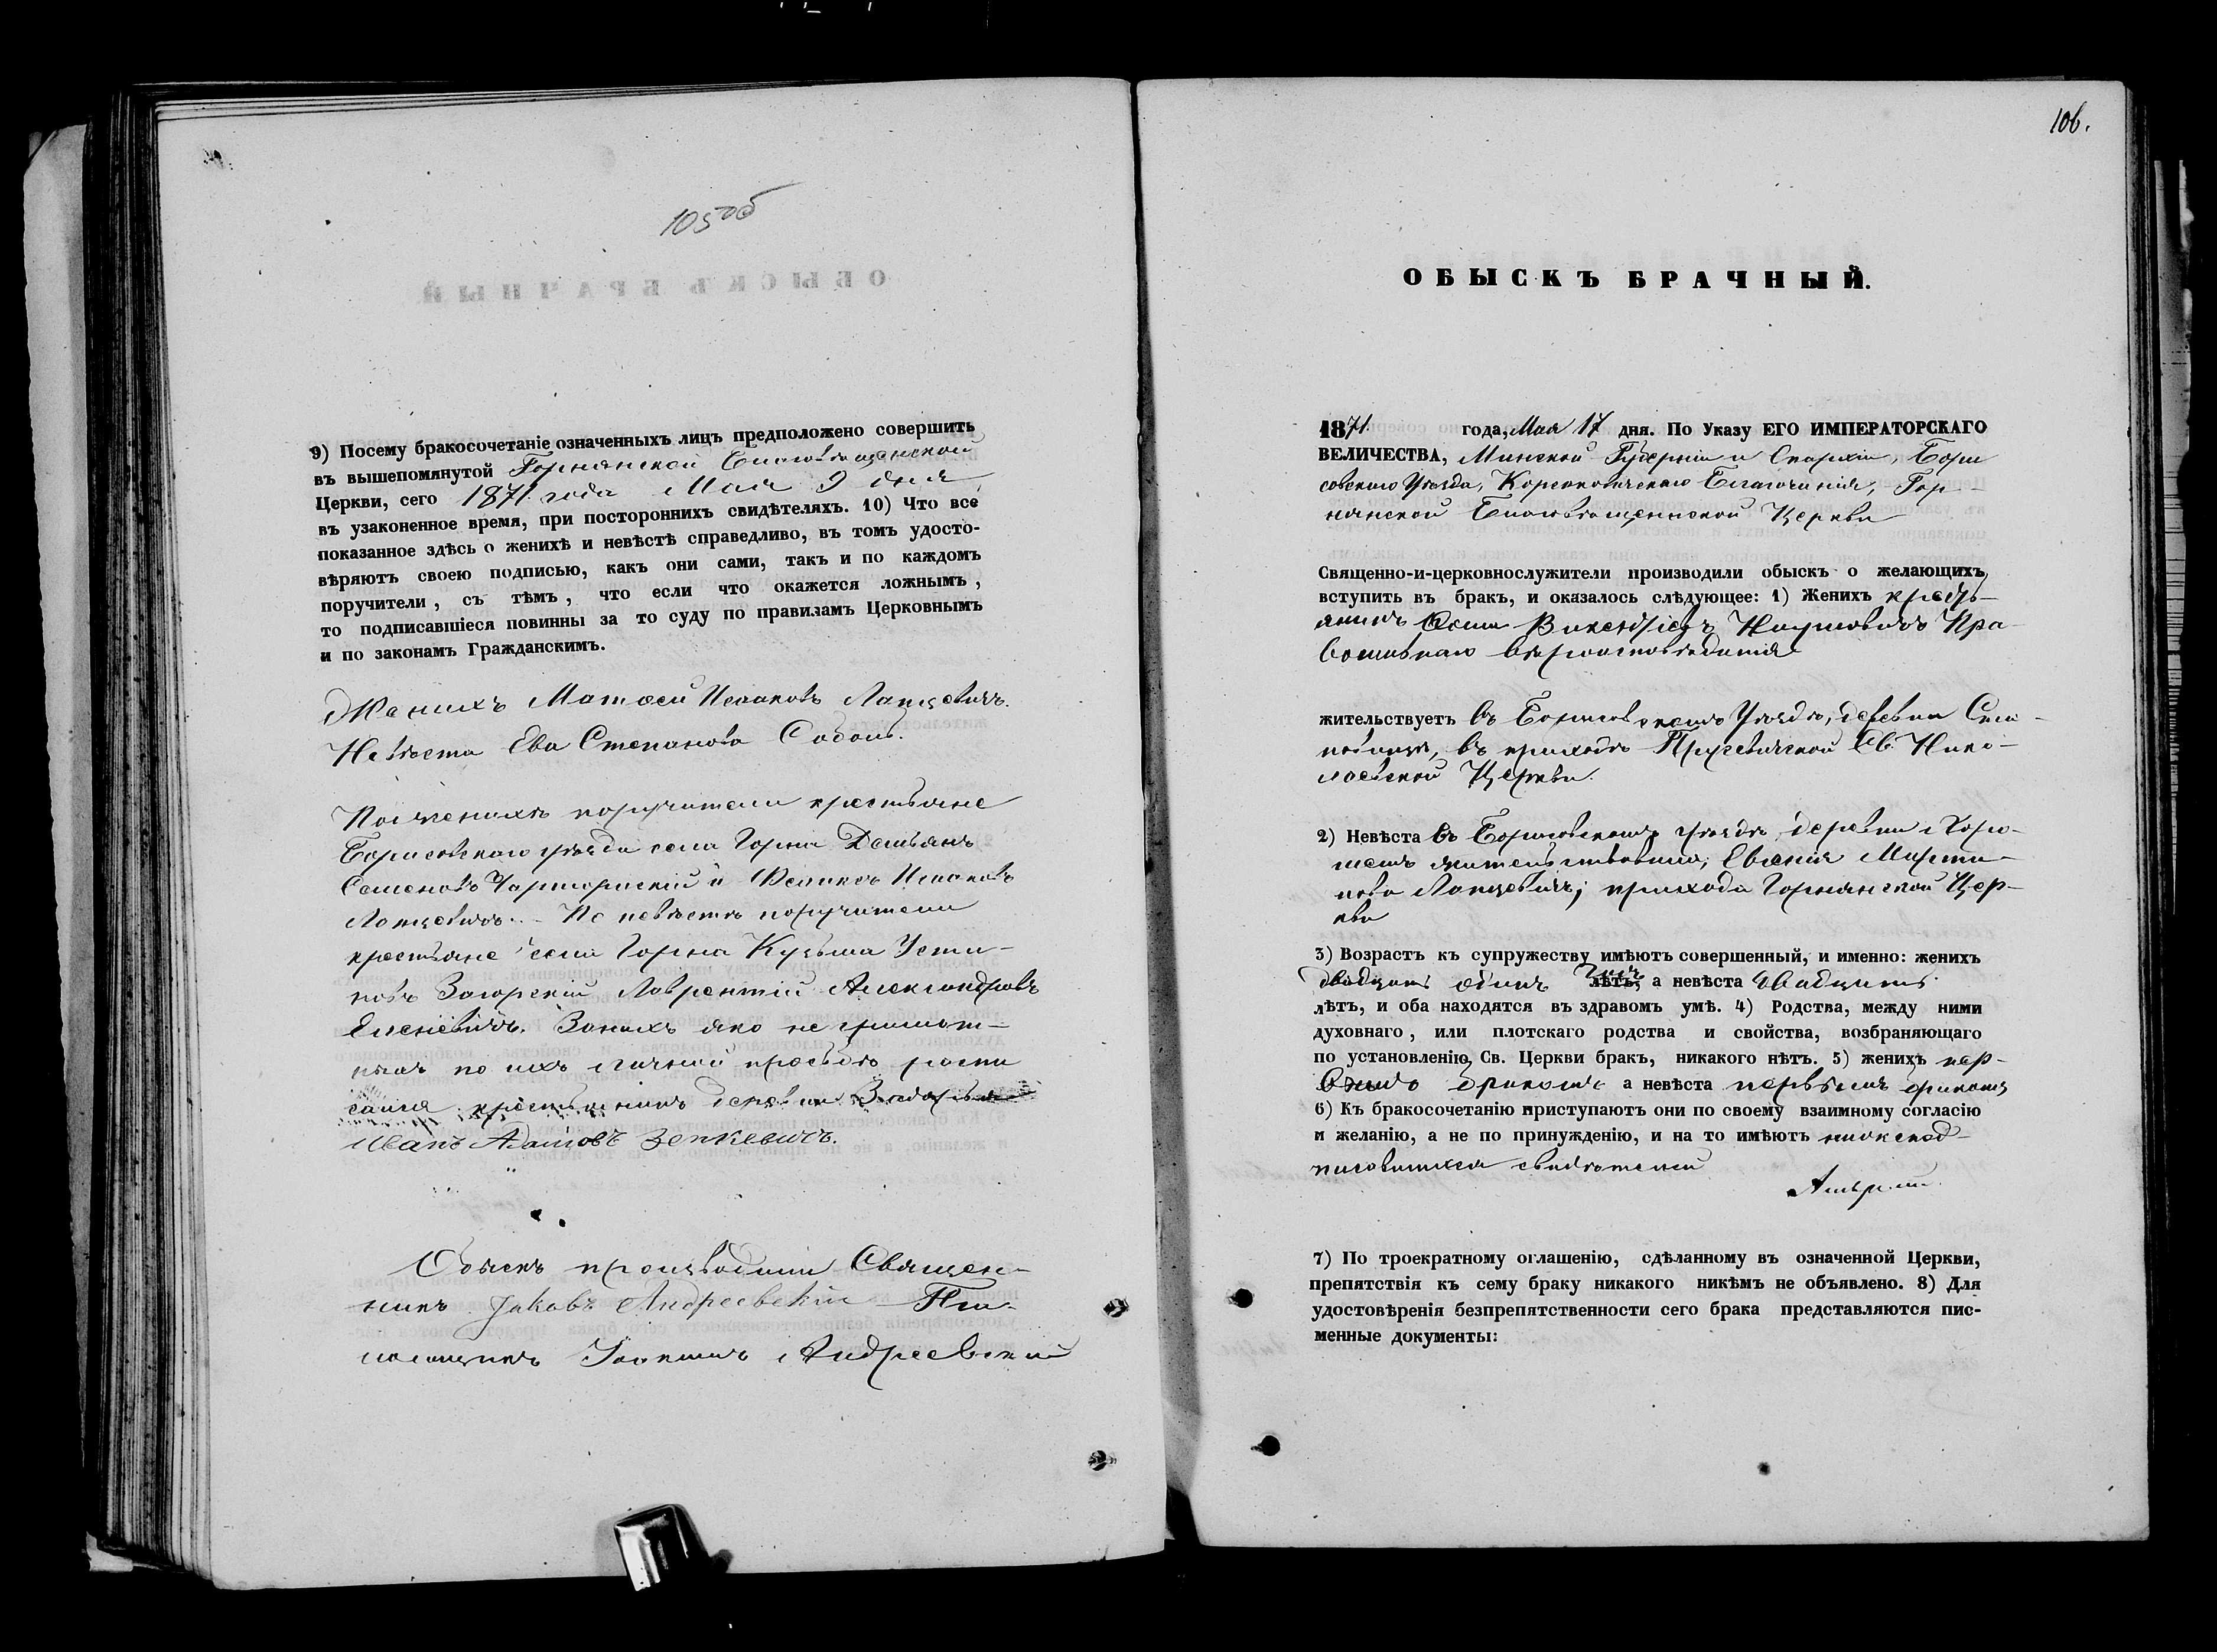 105об
9) Посему бракосочетаніе означенныхъ лицъ предположено совершить
въ вышепомянутой Горнянской Благовѣщенской
Церкви, сего 1871 года Мая 9 дня
въ узаконенное время, при постороннихъ свидѣтеляхъ. 10) Что все
показанное здѣсь о женихѣ и невѣстѣ справедливо, въ томъ удосто-
вѣряютъ своею подписью, какъ они сами, такъ и по каждомъ
поручители, съ тѣмъ, что если что окажется ложнымъ,
то подписавшіеся повинны за то суду по правиламъ Церковнымъ
и по законамъ Гражданскимъ.
Женихъ Матѳей Исааковъ Лапцевичъ.
Невѣста Ева Степанова Соболь.
По женихѣ поручители крестьяне
Борисовскаго уѣзда села Горна Демьянъ
Семеновъ Чарторискій и Исааковъ
Лапцевичъ. По невѣстѣ поручители
крестьяне села Горна Кузьма Усти-
новъ Загорскій Лаврентій Александровъ
За нихъ яко не грамот-
ныхъ по ихъ личной просьбѣ роспи
сался крестьянинъ деревни
Иванъ Адамовъ Зенкевичъ.
Обыскъ производили Священ-
никъ Іаковъ Андреевскій Пса-
ломщикъ Іоакимъ Андреевскій
106.
ОБЫСКЪ БРАЧНЫЙ.
1871 года, Мая 17 дня. По Указу ЕГО ИМПЕРАТОРСКАГО
ВЕЛИЧЕСТВА, Минской Губерніи и Епархіи, Бори
совскаго Уѣзда, Благочинія, Гор-
нянской Благовѣщенской Церкви
Священно-и-церковнослужители производили обыскъ о желающихъ
вступить въ бракъ, и оказалось слѣдующее: 1) Женихъ кресть-
янинъ Викентіевъ Наумовичъ Пра-
вославнаго вѣроисповѣданія
жительствуетъ въ Борисовскомъ Уѣздѣ, деревни
въ приходѣ Св. Нико-
лаевской Церкви.
2) Невѣста въ Борисовскомъ уѣздѣ деревни
жительствовала, Евгенія Марти-
нова Лапцевичъ, прихода Горнянской Цер-
кви
3) Возрастъ къ супружеству имѣютъ совершенный, и именно: женихъ
двадцать одинъ годъ лѣтъ, а невѣста двадцать
лѣтъ, и оба находятся въ здравомъ умѣ. 4) Родства, между ними
духовнаго, или плотскаго родства и свойства, возбраняющаго
по установленію Св. Церкви бракъ, никакого нѣтъ. 5) женихъ пер-
вымъ бракомъ а невѣста первымъ бракомъ
6) Къ бракосочетанію приступаютъ они по своему взаимному согласію
и желанію, а не по принужденію, и на то имѣютъ нижепод-
писавшихся свидѣтелей
7) По троекратному оглашенію, сдѣланному въ означенной Церкви,
препятствія къ сему браку никакого никѣмъ не объявлено. 8) Для
удостовѣренія безпрепятственности сего брака представляются пис-
менные документы: